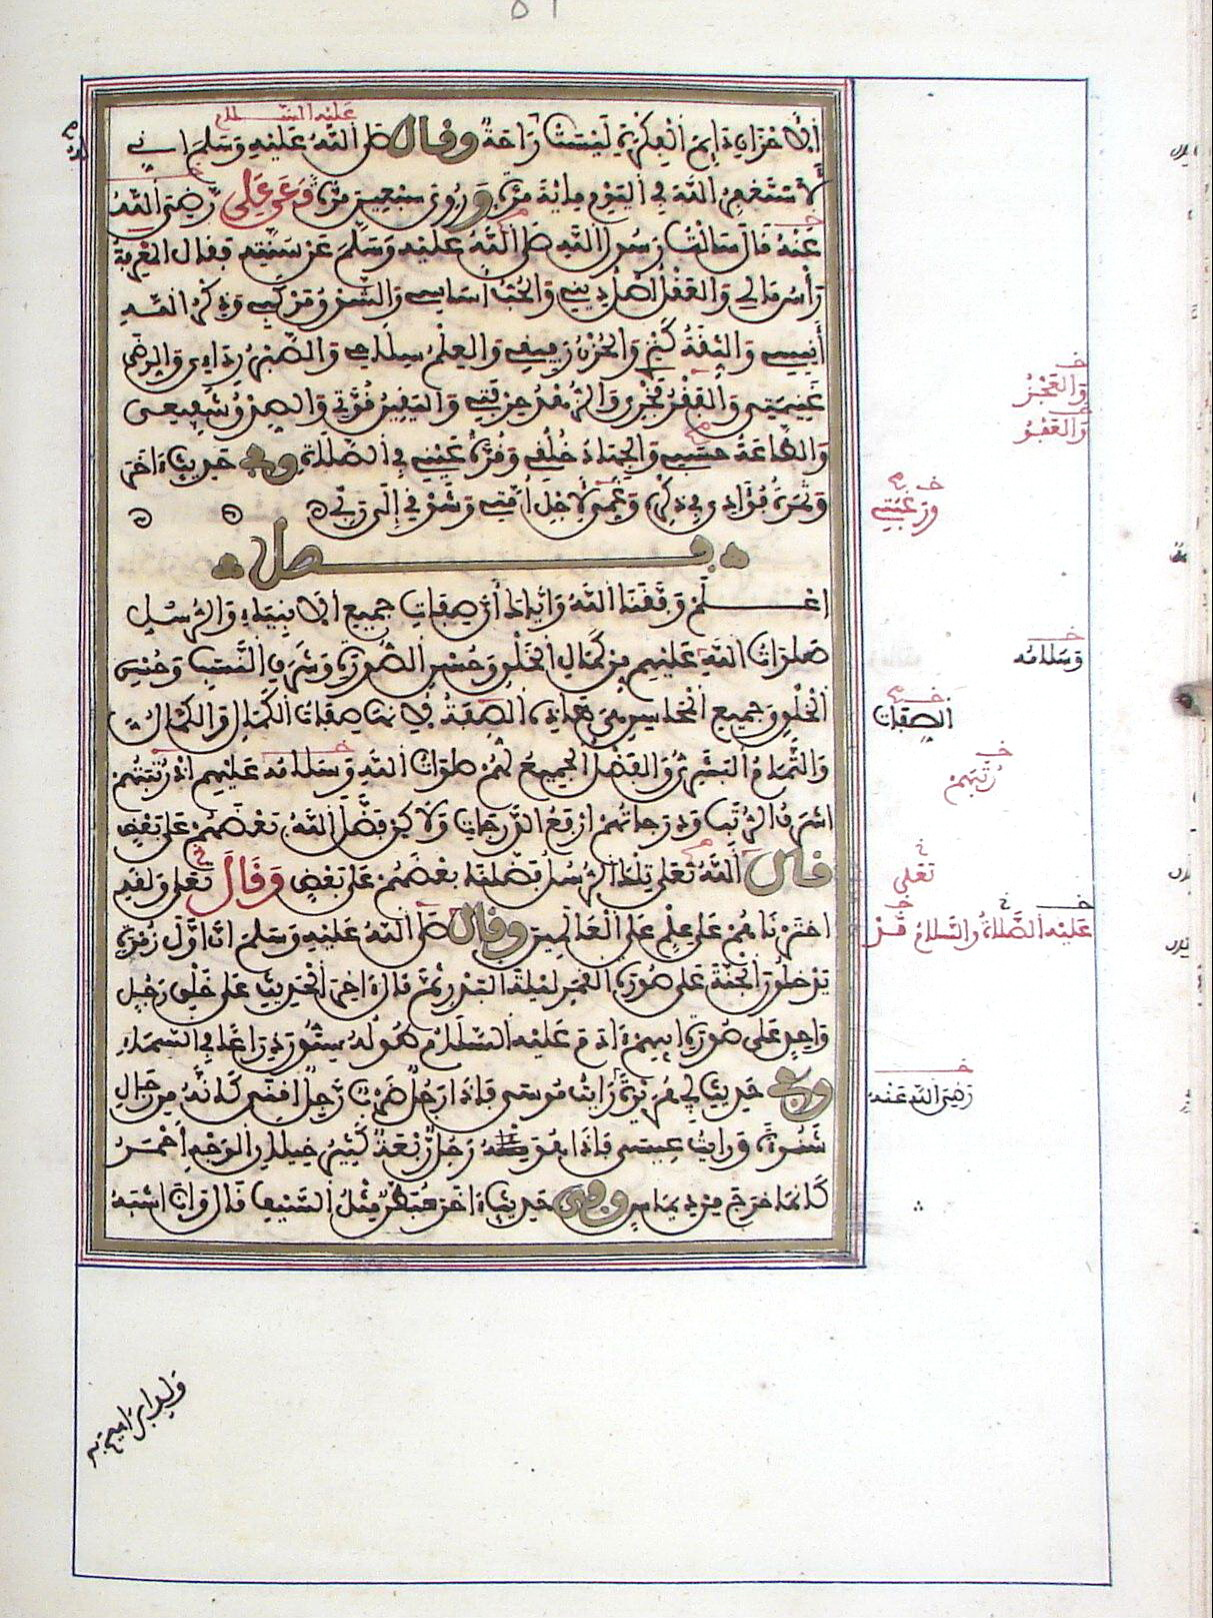 الأحزان دايم الفكرة ليست راحة وقال صلى الله عليه وسلم إني
عليه السلام
لأستغفر الله في اليوم ماية مرة وروي سبعين مرة وعن علي رضي الله
عنه قال سألت رسول الله صلى الله عليه وسلم عن سنته فقال المعرفة
رأس مالي والعقل أصل ديني والحب أساسي والشوق مركبي وذكر الله
أنيسي والثقة كنزي والحزن رفيقي والعلم سلاحي والصبر ردائي والرضى
غنيمتي والفقر فخري والزهد حرفتي واليقين قوتي والصدق شفيعي
والطاعة حسبي والجهاد خلقي وقرة عيني في الصلاة وفي حديث آخر
وثمرة فؤادي في ذكره وغمي لأجل أمتي وشوقي إلى ربي
فصل
اعلم وفقنا الله وإياك أن صفات جميع الأنبياء والرسل
صلوات الله عليهم من كمال الخلق وحسن الصورة وشرف النسب وحسن
الخلق وجميع المحاسن هي هذه الصفة لأنها صفات الكمال والكمال
والتمام البشري والفضل الجميع لهم صلوات الله وسلامه عليهم إذ رتبتهم
أشرف الرتب ودرجاتهم أرفع الدرجات ولاكن فضل الله بعضهم على بعض
قال الله تعلى تلك الرسل فضلنا بعضهم على بعض وقال تعلى ولقد
اخترناهم على علم على العالمين وقال صلى الله عليه وسلم إن أول زمرة
يدخلون الجنة على صورة القمر ليلة البدر ثم قال آخر الحديث على خلق رجل
واحد على صورة أبيهم آدم عليه السلام طوله ستون ذراعا في السماء
وفي حديث أبي هريرة رأيت موسى فإذا رجل ضرب رجل أقنى كأنه من رجال
شنوءة ورأيت عيسى فإذا هو رجل ربعة كثير خيلان الوجه أحمر
كأنما خرج من ديماس وفي حديث آخر مبطن مثل السيف قال وأنا أشبه
والعجز
والفقر
ورغبتي
وسلامه
الصفات
رتبهم
تعلى
عليه الصلاة والسلام
رضي الله عنه
ولد ابراهيم به